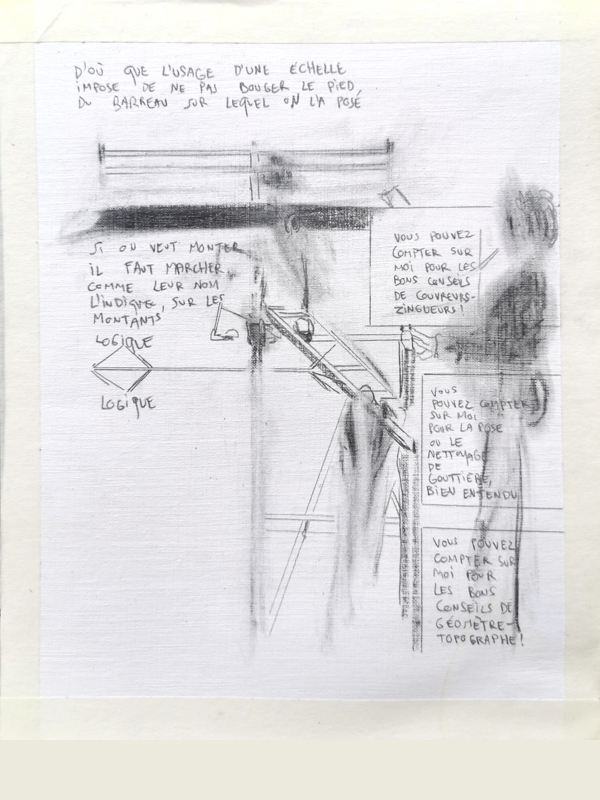 D'OÙ QUE L'USAGE D'UNE ÉCHELLE
IMPOSE DE NE PAS BOUGER LE PIED,
DU BARREAU SUR LEQUEL ON L'A POSÉ
SI ON VEUT MONTER
IL FAUT MARCHER
COMME LEUR NOM
L'INDIQUE, SUR LES
MONTANTS
LOGIQUE
LOGIQUE
VOUS POUVEZ
COMPTER SUR
MOI POUR LES
BONS CONSEILS
DE COUVREURS-
ZINGUEURS!
VOUS
POUVEZ COMPTER
SUR MOI
POUR LA POSE
OU LE
NETTOYAGE
DE
GOUTTIÈRE,
BIEN ENTENDU
VOUS POUVEZ
COMPTER SUR
MOI POUR
LES BONS
CONSEILS DE
GÉOMÈTRE-
TOPOGRAPHE!